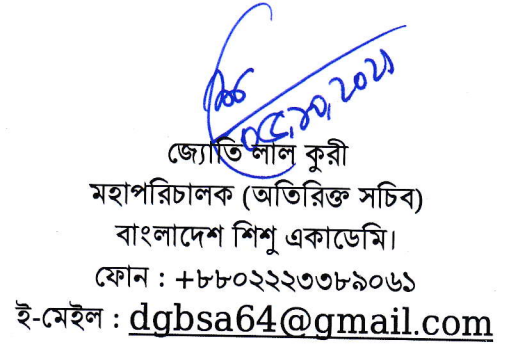 ০৫,১০,২০২১
জ্যোতি লাল কুরী
মহাপরিচালক (অতিরিক্ত সচিব)
বাংলাদেশ শিশু একাডেমি।
ফোন : +৮৮০২২২৩৩৮৯০৬১
ই-মেইল : dgbsa64@gmail.com